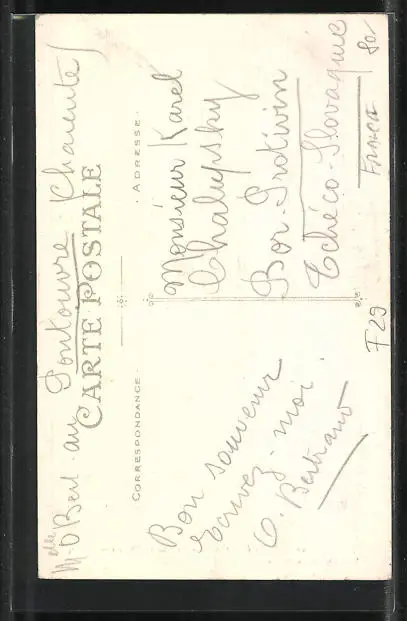 Melle O Bert au Pontouvre (Charente)
CARTE POSTALE
CORRESPONDANCE
ADRESSE
Bon souvenir
Ecrivez-moi
O. Bertrand
Monsieur Karel
Chalupsky
Bor-Protivin
Tchéco-Slovaquie
FRANCIE 80
F29